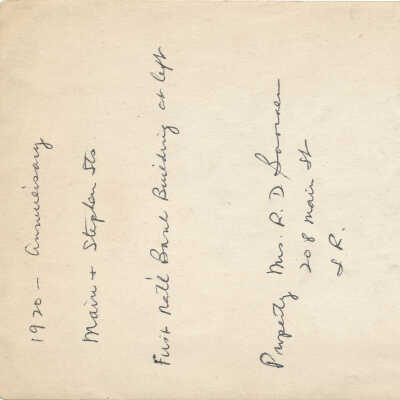 1920 - Anniversary
Main + Stephen Sts.
First Nat'l Bank Building at left
Property Mrs. R. D.
208 Main St